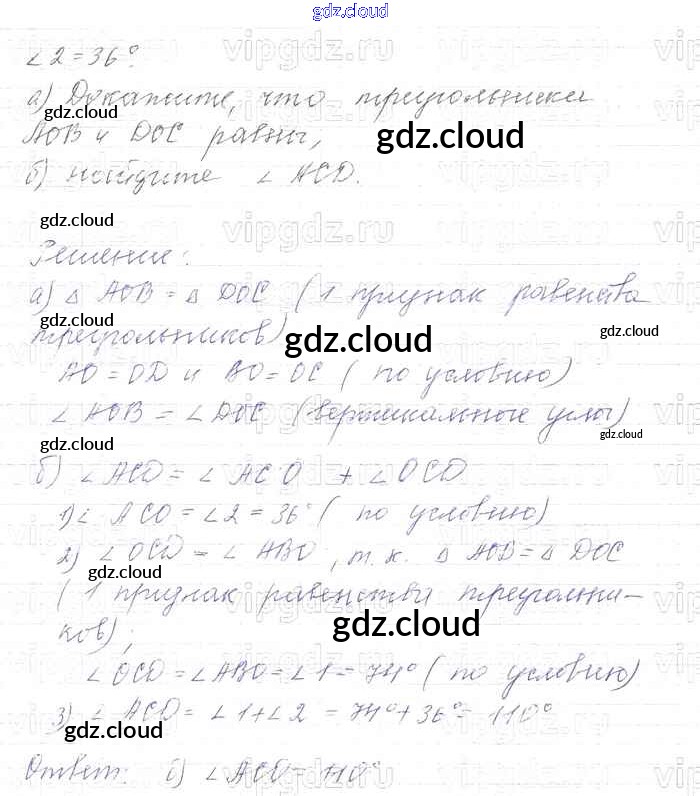 gdz.cloud
∠2=36°.
а) Докажите, что треугольники
gdz.cloud
АОВ и DOC равны,
gdz.cloud
б) найдите ∠ACD.
gdz.cloud
Решение:
а) △ AOB = △ DOC (1 признак равенства
gdz.cloud
треугольников)
gdz.cloud
gdz.cloud
AO=OD и BO=OC (по условию)
∠AOB = ∠DOC (вертикальные углы)
gdz.cloud
gdz.cloud
б) ∠ACD = ∠ACO + ∠OCD
1) ∠ACO = ∠2 = 36° (по условию)
2) ∠OCD = ∠ABO, т.к. △ AOB = △ DOC
gdz.cloud
(1 признак равенства треугольни-
ков);
gdz.cloud
∠OCD = ∠ABO = ∠1 = 74° (по условию)
3) ∠ACD = ∠1+∠2 = 74°+36°= 110°
gdz.cloud
Ответ: б) ∠ACD=110°
vipgdz.ru